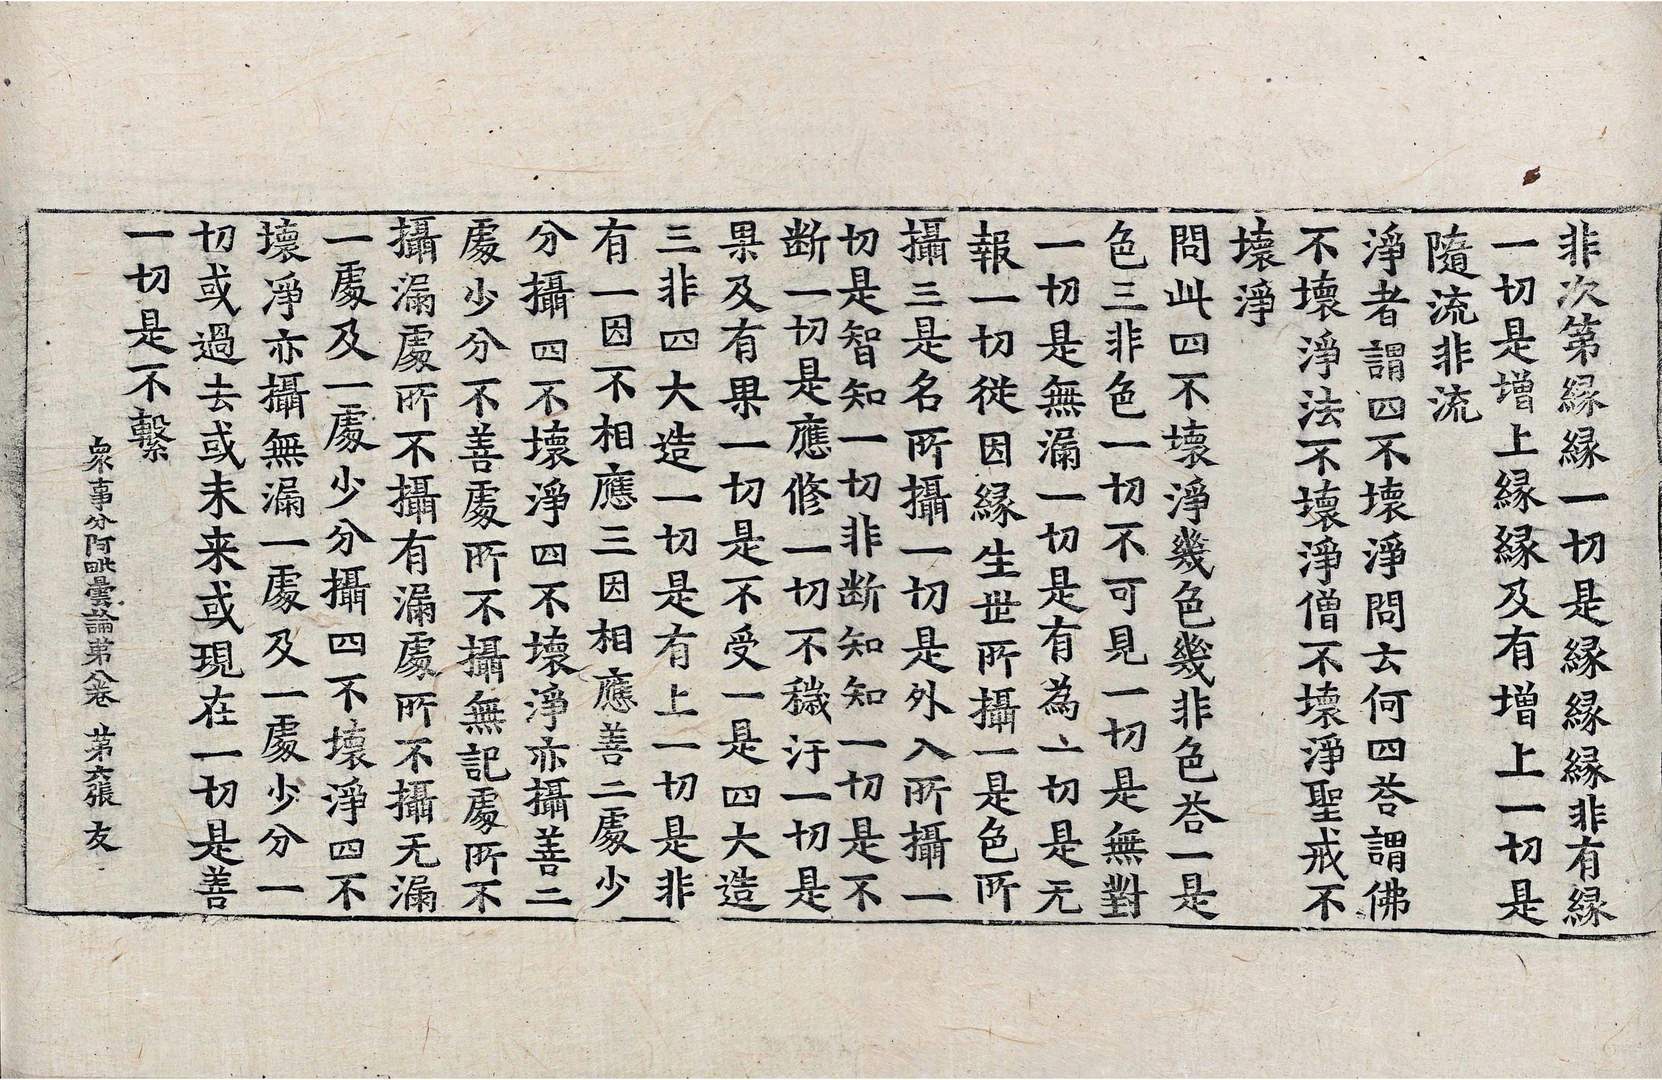 非次第縁縁一切是縁縁縁縁非有縁
一切是增上縁縁及有增上一切是
隨流非流
淨者謂四不壞淨問云何四荅謂佛
不壞淨法不壞淨僧不壞淨聖戒不
壞淨
問此四不壞淨幾色幾非色荅一是
色三非色一切不可見一切是無對
一切是無漏一切是有為一切是无
報一切從因縁生世所攝一是色所
攝三是名所攝一切是外入所攝一
切是智知一切非断知知一切是不
断一切是應修一切不穢汙一切是
果及有果一切是不受一是四大造
三非四大造一切是有上一切是非
有一因不相應三因相應善二處少
分攝四不壞淨四不壞淨亦攝善二
處少分不善處所不攝無記處所不
攝漏處所不攝有漏處所不攝无漏
一處及一處少分攝四不壞淨四不
壞淨亦攝無漏一處及一處少分一
切或過去或未来或現在一切是善
一切是不繫
衆事分阿毗曇論第八卷　第六張　友